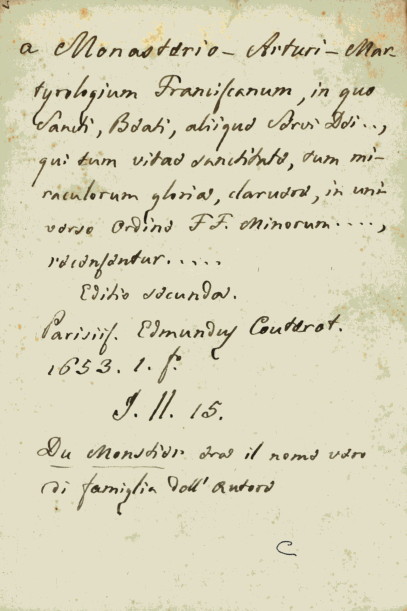 a Monasterio – Arturi – Mar-
tyrologium Franciscanum, in quo
Sancti, Beati, aliique Servi Dei..,
qui tum vitae sanctitate, tum mi-
raculorum gloria, claruere, in uni-
verso ordine F F. Minorum....,
recensentur.....
Editio secunda.
Parisiis. Edmundus Couterot.
1653. 1. fo.
J. II. 15.
Du Monstier era il nome vero
di famiglia dell' Autore
C